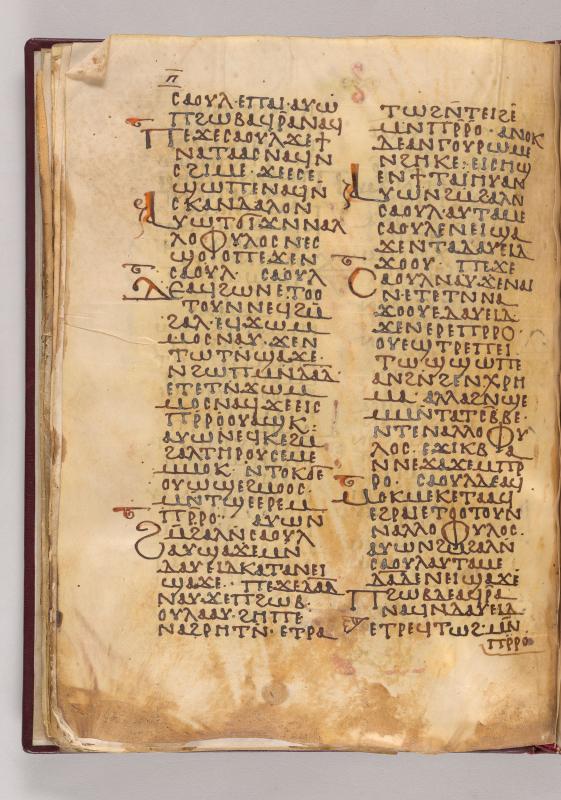 ⲡ
ⲥⲁⲟⲩⲗ·ⲉⲡⲁⲓ·ⲁⲩⲱ
ⲡϩⲱⲃⲁϥⲣⲁⲛⲁϥ
ⲡⲉϫⲉⲥⲁⲟⲩⲗϫⲉϯ
ⲛⲁⲧⲁⲁⲥⲛⲁϥⲛ
ⲥϩⲓⲙⲉ·ϫⲉⲉⲥⲉ
ϣⲱⲡⲉⲛⲁϥⲛ
ⲥⲕⲁⲛⲇⲁⲗⲟⲛ
ⲁⲩⲱⲧϭⲓϫⲛⲛⲁⲗ
ⲗⲟⲫⲩⲗⲟⲥⲛⲉⲥ
ϣⲟⲟⲡⲡⲉϫⲛ
ⲥⲁⲟⲩⲗ· ⲥⲁⲟⲩⲗ
ⲇⲉⲁϥϩⲱⲛⲉⲧⲟⲟ
ⲧⲟⲩⲛⲛⲉϥϩⲙ
ϩⲁⲗ·ⲉϥϫⲱⲙ
ⲙⲟⲥⲛⲁⲩ·ϫⲉⲛ
ⲧⲱⲧⲛϣⲁϫⲉ·
ⲛϩⲱⲡⲙⲛⲇⲁⲇ·
ⲉⲧⲉⲧⲛϫⲱⲙ
ⲙⲟⲥⲛⲁϥϫⲉⲉⲓⲥ
ⲡⲣⲣⲟⲟⲩⲁϣⲕ:
ⲁⲩⲱⲛⲉϥⲕⲉϩⲙ
ϩⲁⲗⲧⲏⲣⲟⲩⲥⲉⲙⲉ
ⲙⲙⲟⲕ·ⲛⲧⲟⲕϭⲉ
ⲟⲩⲱϣⲉϩⲙⲟⲟⲥ
ⲙⲛⲧϣⲉⲉⲣⲉⲙ
ⲡⲣⲣⲟ· ⲁⲩⲱⲛ
ϩⲙϩⲁⲗⲛⲥⲁⲟⲩⲗ
ⲁⲩϣⲁϫⲉⲙⲛ
ⲇⲁⲩⲉⲓⲇⲕⲁⲧⲁⲛⲉⲓ
ϣⲁϫⲉ· ⲡⲉϫⲉⲇⲁⲇ
ⲛⲁⲩ·ϫⲉⲡϩⲱⲃ·
ⲟⲩⲗⲁⲁⲩ·
ⲛⲁϩⲣⲏⲧⲛ·ⲉⲧⲣⲁ
ⲧⲱϭⲛⲧⲉⲓϩⲉ
ⲙⲛⲡⲣⲣⲟ·ⲁⲛⲟⲕ
ⲇⲉⲁⲛⲅⲟⲩⲣⲱⲙⲉ
ⲛϩⲏⲕⲉ:ⲉⲓⲥϩⲏⲩ
ⲉⲛϯⲧⲁⲓⲏⲩⲁⲛ
ⲁⲩⲱⲛϩⲙϩⲁⲗⲛ
ⲥⲁⲟⲩⲗ·ⲁⲩⲧⲁⲙⲉ
ⲥⲁⲟⲩⲗⲉⲛⲉⲓϣⲁ
ϫⲉⲛⲧⲁⲇⲁⲩⲉⲓⲇ
ϫⲟⲟⲩ· ⲡⲉϫⲉ
ⲥⲁⲟⲩⲗⲛⲁⲩ·ϫⲉⲛⲁⲓ
ⲛⲉⲧⲉⲧⲛⲛⲁ
ϫⲟⲟⲩⲉⲇⲁⲩⲉⲓⲇ
ϫⲉⲛⲉⲣⲉⲡⲣⲣⲟ·
ⲟⲩⲉϣⲧⲣⲉⲡⲉⲓ
ⲧⲱϣϣⲱⲡⲉ
ⲁⲛϩⲛϩⲉⲛⲭⲣⲏ
ⲙⲁ·ⲁⲗⲗⲁϩⲛϣⲉ
ⲙⲙⲛⲧⲁⲧⲥⲃⲃⲉ·
ⲛⲧⲉⲛⲁⲗⲗⲟⲫⲩ
ⲗⲟⲥ·ⲉϫⲓⲕⲃⲁ
ⲛⲛⲉϫⲁϫⲉⲙⲡⲣ
ⲣⲟ· ⲥⲁⲟⲩⲗⲇⲉⲁϥ
ⲙⲟⲕⲙⲉⲕⲉⲧⲁⲁϥ
ⲉϩⲣⲁⲓⲉⲧⲟⲟⲧⲟⲩⲛ
ⲛⲁⲗⲗⲟⲫⲩⲗⲟⲥ·
ⲁⲩⲱⲛϩⲙϩⲁⲗⲛ
ⲥⲁⲟⲩⲗⲁⲩⲧⲁⲙⲉ
ⲇⲁⲇⲉⲛⲉⲓϣⲁϫⲉ
ⲡϩⲱⲃⲇⲉⲁϥⲣⲁ
ⲛⲁϥⲛⲇⲁⲩⲉⲓⲇ
ⲉⲧⲣⲉϥⲧⲱϭ·ⲙⲛ
ⲡⲣⲣⲟ·